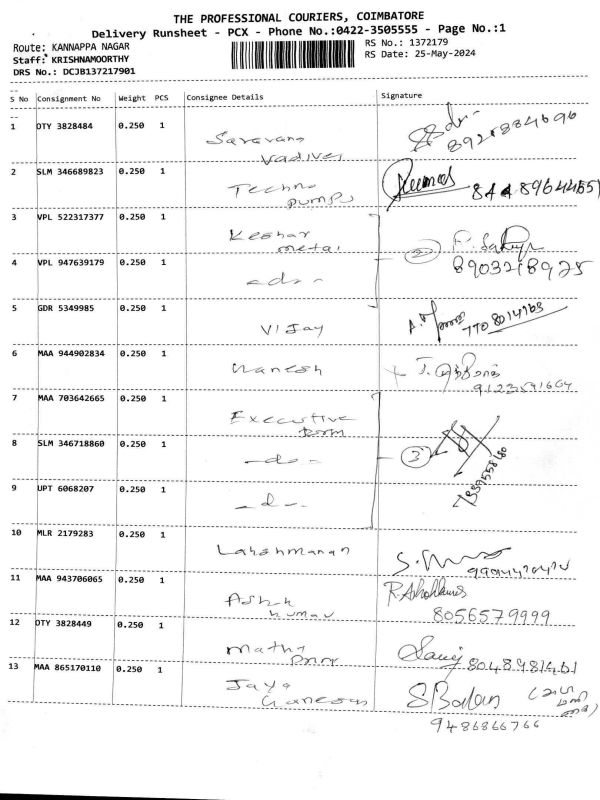 THE PROFESSIONAL COURIERS, COIMBATORE
Delivery Runsheet - PCX - Phone No.:0422-3505555 - Page No.:1
Route: KANNAPPA NAGAR
RS No.: 1372179
Staff: KRISHNAMOORTHY
RS Date: 25-May-2024
DRS No.: DCJB137217901
S No Consignment No Weight PCS Consignee Details Signature
1 OTY 3828484 0.250 1 Saravana
Vadivel
2 SLM 346689823 0.250 1 Techno
pumps
3 VPL 522317377 0.250 1 Keshar
metal
4 VPL 947639179 0.250 1 -do- 2
8903218925
5 GDR 5349985 0.250 1 Vijay
6 MAA 944902834 0.250 1 Ganesh
7 MAA 703642665 0.250 1 Executive
8 SLM 346718860 0.250 1 -do- 3
9 UPT 6068207 0.250 1 -d-
10 MLR 2179283 0.250 1 Lakshmanan
11 MAA 943706065 0.250 1 Ashok
Kumar
8056579999
12 OTY 3828449 0.250 1
13 MAA 865170110 0.250 1 Jaya
Ganesan
S Balan
9486866766